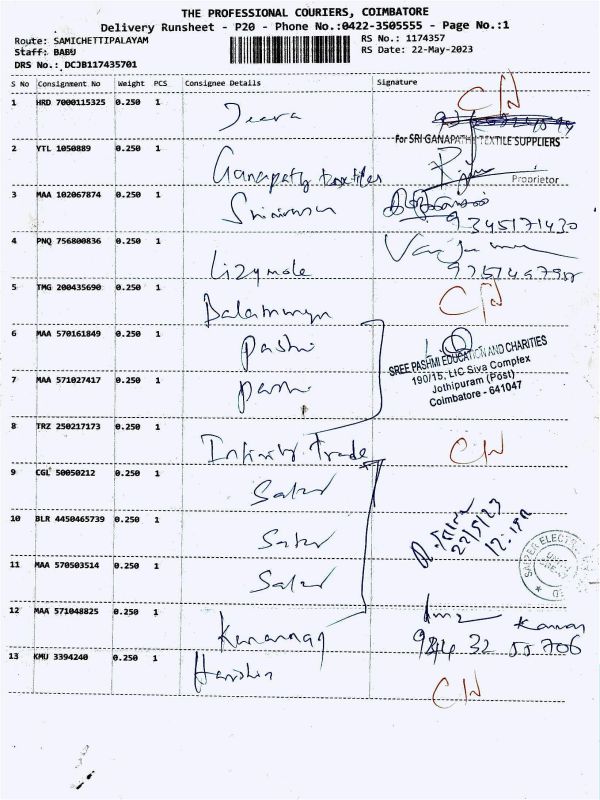 THE PROFESSIONAL COURIERS, COIMBATORE
Delivery Runsheet - P20 - Phone No.:0422-3505555 - Page No.:1
Route: SAMICHETTIPALAYAM
RS No.: 1174357
Staff: BABU
RS Date: 22-May-2023
DRS No.: DCJB117435701
S No Consignment No Weight PCS Consignee Details Signature
1 HRD 7000115325 0.250 1 Jeeva CN
For SRI GANAPATHI TEXTILE SUPPLIERS
2 YTL 1050889 0.250 1 Ganapathy textiles
Proprietor
3 MAA 102067874 0.250 1 Srinivasan
9345171430
4 PNQ 756800836 0.250 1 Lizymole
5 TMG 200435690 0.250 1 Balamurugan CN
6 MAA 570161849 0.250 1 Pashmi
SREE PASHMI EDUCATION AND CHARITIES
190/15, LIC Siva Complex
Jothipuram (Post)
Coimbatore - 641047
7 MAA 571027417 0.250 1
8 TRZ 250217173 0.250 1 Infinity Trade CN
9 CGL 50050212 0.250 1 Salzer
10 BLR 4450465739 0.250 1 Salzer
22/5/23
11 MAA 570503514 0.250 1 Salzer
SALZER ELECTR
12 MAA 571048825 0.250 1
13 KMU 3394240 0.250 1 Harshin CN